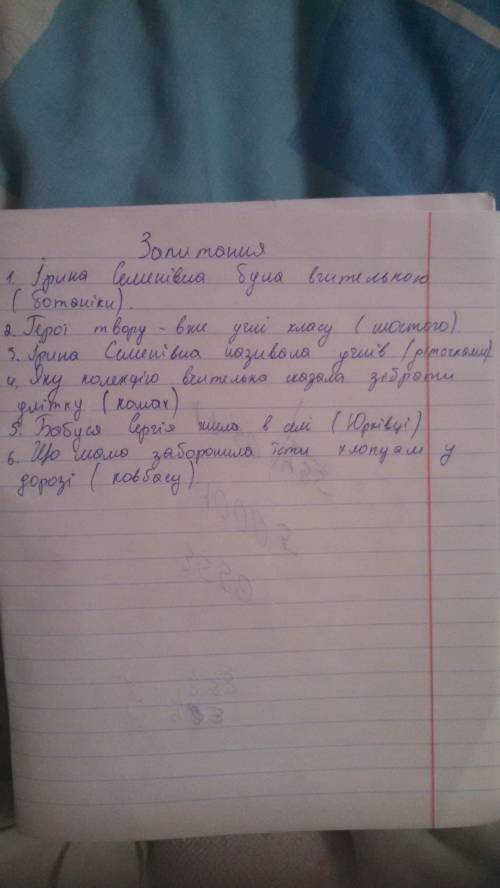 Запитання
1. Ірина Семенівна була вчителькою
( ботаніки).
2. Герої твору - вже учні класу ( шостого)
3. Ірина Семенівна називала учнів (діточками)
4. Яку колекцію вчителька казала зібрати
влітку ( комах)
5. Бабуся Сергія жила в селі ( Юрківці)
6. Що мама заборонила їсти хлопцям у
дорозі ( ковбасу).